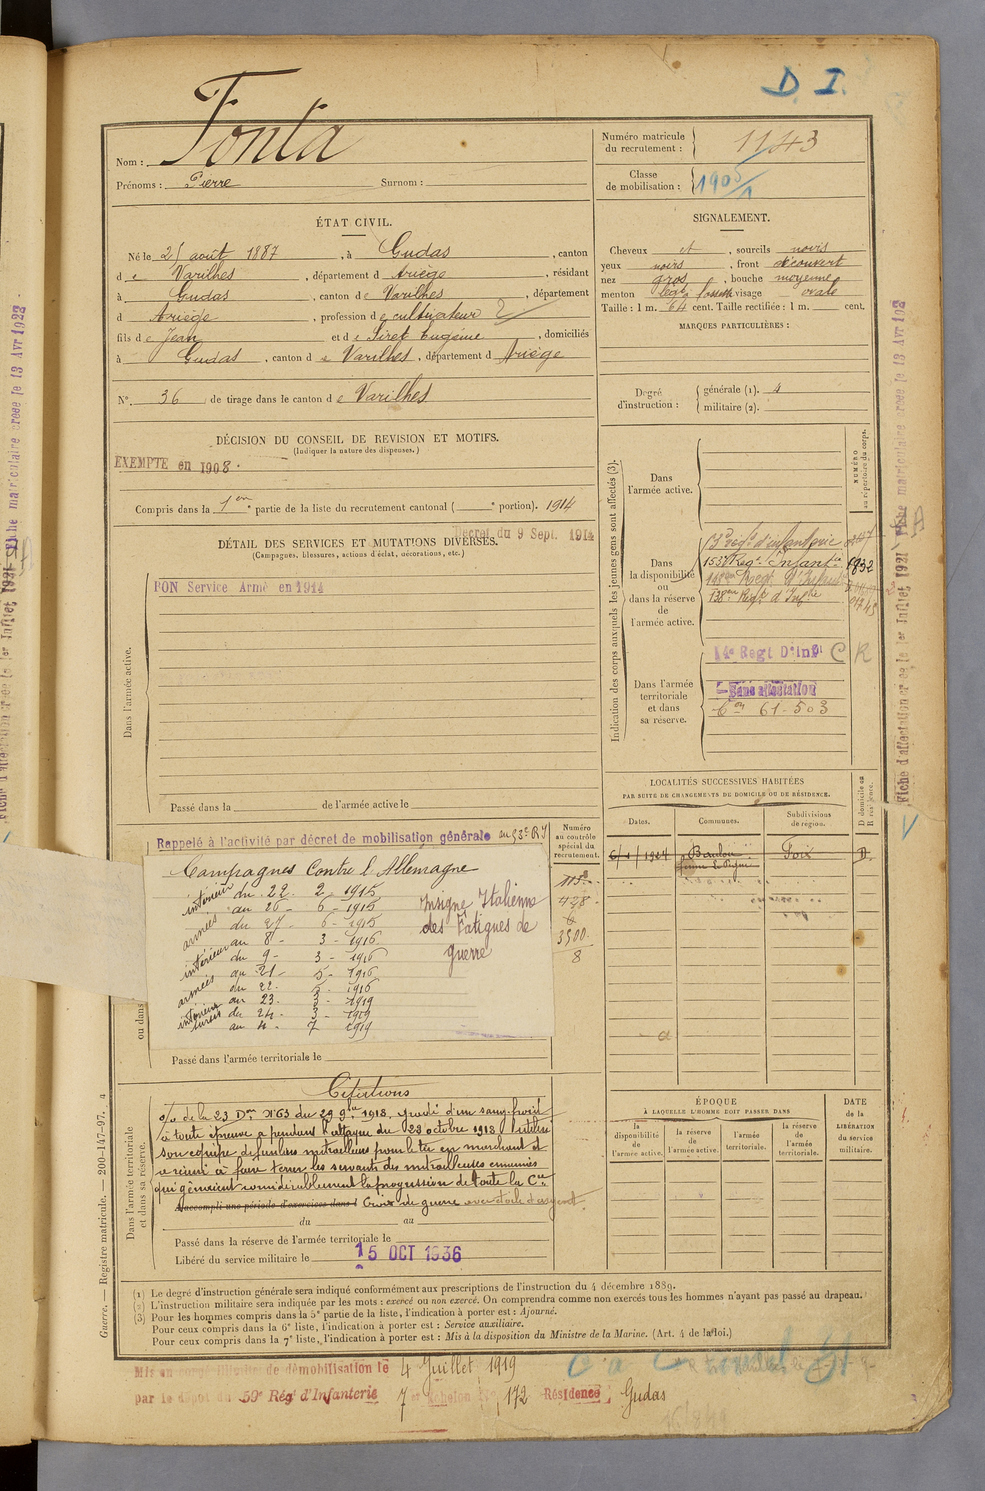 D. I.
Nom : Fonta
Prénoms : Pierre Surnom :
Numéro matricule du recrutement : 1143
Classe de mobilisation : 1905/1
ÉTAT CIVIL.
Né le 25 août 1887, à Gudas, canton
d e Varilhes, département d Ariège, résidant
à Gudas, canton d e Varilhes, département
d Ariège, profession d e cultivateur
fils d e Jean et d e Siret Eugénie, domiciliés
à Gudas, canton d e Varilhes, département d Ariège
N° 36 de tirage dans le canton d e Varilhes
SIGNALEMENT.
Cheveux et, sourcils noirs
yeux noirs, front découvert
nez gros, bouche moyenne
menton visage ovale
Taille : 1 m. 64 cent. Taille rectifiée : 1 m. cent.
MARQUES PARTICULIÈRES :
Degré d'instruction : générale (1). 4
militaire (2).
DÉCISION DU CONSEIL DE REVISION ET MOTIFS.
(Indiquer la nature des dispenses.)
EXEMPTÉ en 1908.
Compris dans la 1ère partie de la liste du recrutement cantonal ( e portion). 1914
Décret du 9 Sept. 1914
DÉTAIL DES SERVICES ET MUTATIONS DIVERSES.
(Campagnes, blessures, actions d'éclat, décorations, etc.)
BON Service Armé en 1914
Dans l'armée active.
Passé dans la de l'armée active le
Indication des corps auxquels les jeunes gens sont affectés (3).
NUMÉRO au répertoire du corps.
Dans l'armée active.
Dans la disponibilité ou dans la réserve de l'armée active.
153e Reg. Infantie 1832
Dans l'armée territoriale et dans sa réserve.
14e Regt D'Infie C R
Sans affectation
61-503
LOCALITÉS SUCCESSIVES HABITÉES
PAR SUITE DE CHANGEMENTS DE DOMICILE OU DE RÉSIDENCE.
Dates. Communes. Subdivisions de région. D domicile ou R résidence.
Baulou Foix D
Rappelé à l'activité par décret de mobilisation générale
Numéro au contrôle spécial du recrutement.
Campagnes Contre l'Allemagne
intérieur du 22 - 2 - 1915
au 26 - 6 - 1915
armées du 27 - 6 - 1915
au 8 - 3 - 1916
intérieur du 9 - 3 - 1916
au 21 - 5 - 1916
armées du 22 - 5 - 1916
au 23 - 3 - 1919
intérieur du 24 - 3 - 1919
au 4 - 7 1919
Insigne Italienne
des Fatigues de
guerre
428
3500
8
ou dans
Passé dans l'armée territoriale le
Dans l'armée territoriale et dans sa réserve.
Citations
o/o de la 23 Don N° 63 du 29 9bre 1918, gradé d'un sang froid
à toute épreuve a pendant l'attaque du 23 octobre 1918
son équipe de fusiliers mitrailleurs pour le tir en marchant et
a réussi à faire terrer les servants des mitrailleuses ennemies
qui gênaient considérablement la progression de toute la Cie
A accompli une période d'exercices dans l Croix de guerre avec étoile d'argent.
du au
Passé dans la réserve de l'armée territoriale le
Libéré du service militaire le 15 OCT 1936
ÉPOQUE
À LAQUELLE L'HOMME DOIT PASSER DANS
la disponibilité de l'armée active. la réserve de l'armée active. l'armée territoriale. la réserve de l'armée territoriale.
DATE de la LIBÉRATION du service militaire.
(1) Le degré d'instruction générale sera indiqué conformément aux prescriptions de l'instruction du 4 décembre 1889.
(2) L'instruction militaire sera indiquée par les mots : exercé ou non exercé. On comprendra comme non exercés tous les hommes n'ayant pas passé au drapeau.
(3) Pour les hommes compris dans la 5e partie de la liste, l'indication à porter est : Ajourné.
Pour ceux compris dans la 6e liste, l'indication à porter est : Service auxiliaire.
Pour ceux compris dans la 7e liste, l'indication à porter est : Mis à la disposition du Ministre de la Marine. (Art. 4 de la loi.)
Guerre. — Registre matricule. — 200-147-97.
Mis en congé illimité de démobilisation le 4 Juillet 1919
par le dépôt du 59e Régt d'Infanterie 7e échelon N° 172 Résidence Gudas